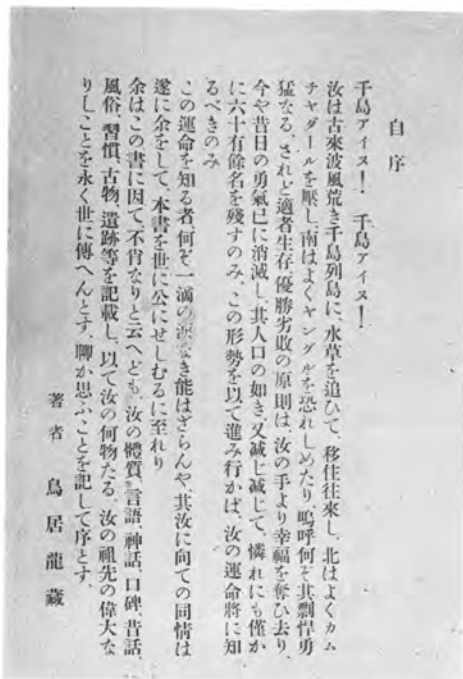 自序
千島アイヌ！　千島アイヌ！
汝は古來波風荒き千島列島に、水草を追ひて、移住往來し、北はよくカム
チヤダールを壓し、南はよくヤングルを恐れしめたり、嗚呼何ぞ其剽悍勇
猛なる、されど適者生存、優勝劣敗の原則は、汝の手より幸福を奪ひ去り、
今や昔日の勇氣已に消滅し、其人口の如き又減じ減じて、憐れにも僅か
に六十有餘名を殘すのみ、この形勢を以て進み行かば、汝の運命將に知
るべきのみ
この運命を知る者、何ぞ一滴の淚なき能はざらんや、其汝に向ての同情は
遂に余をして、本書を世に公にせしむるに至れり
余はこの書に因て、不肖なりと云へども、汝の體質、言語、神話、口碑、昔話、
風俗、習慣、古物、遺跡等を記載し、以て汝の何物たる、汝の祖先の偉大な
りしことを永く世に傳へんとす、聊か思ふことを記して序とす、
著者　鳥居龍藏